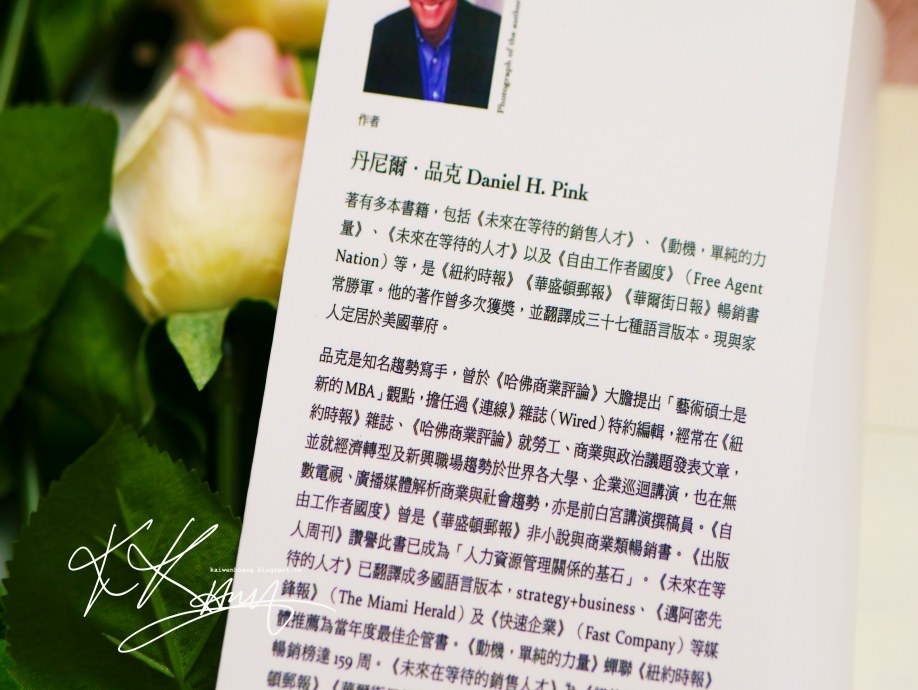 Photograph of the author
作者
丹尼爾．品克 Daniel H. Pink
著有多本書籍，包括《未來在等待的銷售人才》、《動機，單純的力
量》、《未來在等待的人才》以及《自由工作者國度》（Free Agent
Nation）等，是《紐約時報》《華盛頓郵報》《華爾街日報》暢銷書
常勝軍。他的著作曾多次獲獎，並翻譯成三十七種語言版本。現與家
人定居於美國華府。
品克是知名趨勢寫手，曾於《哈佛商業評論》大膽提出「藝術碩士是
新的MBA」觀點，擔任過《連線》雜誌（Wired）特約編輯，經常在《紐
約時報》雜誌、《哈佛商業評論》就勞工、商業與政治議題發表文章，
並就經濟轉型及新興職場趨勢於世界各大學、企業巡迴講演，也在無
數電視、廣播媒體解析商業與社會趨勢，亦是前白宮講演撰稿員。《自
由工作者國度》曾是《華盛頓郵報》非小說與商業類暢銷書。《出版
人周刊》讚譽此書已成為「人力資源管理關係的基石」。《未來在等
待的人才》已翻譯成多國語言版本，strategy+business、《邁阿密先
鋒報》（The Miami Herald）及《快速企業》（Fast Company）等媒
體推薦為當年度最佳企管書。《動機，單純的力量》蟬聯《紐約時報》
暢銷榜達 159 周。《未來在等待的銷售人才》為
頓郵報》
kaiwanhiang.blogspot.tw